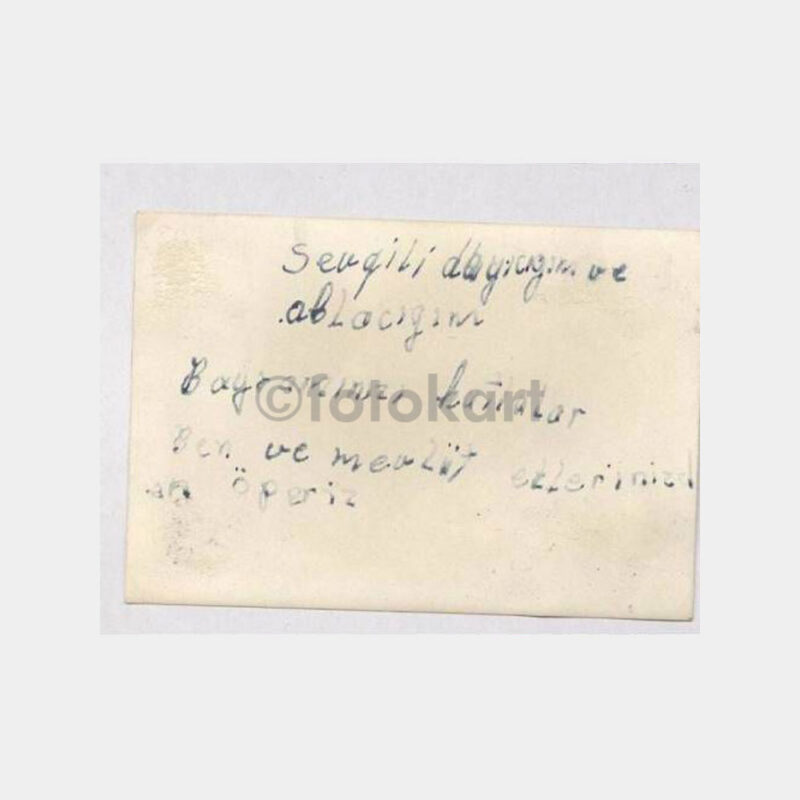 Sevgili dayıcığım ve
ablacığım
Bayramınızı kutlular
Ben ve mevlüt ellerinizd
en öperiz
©fotokart